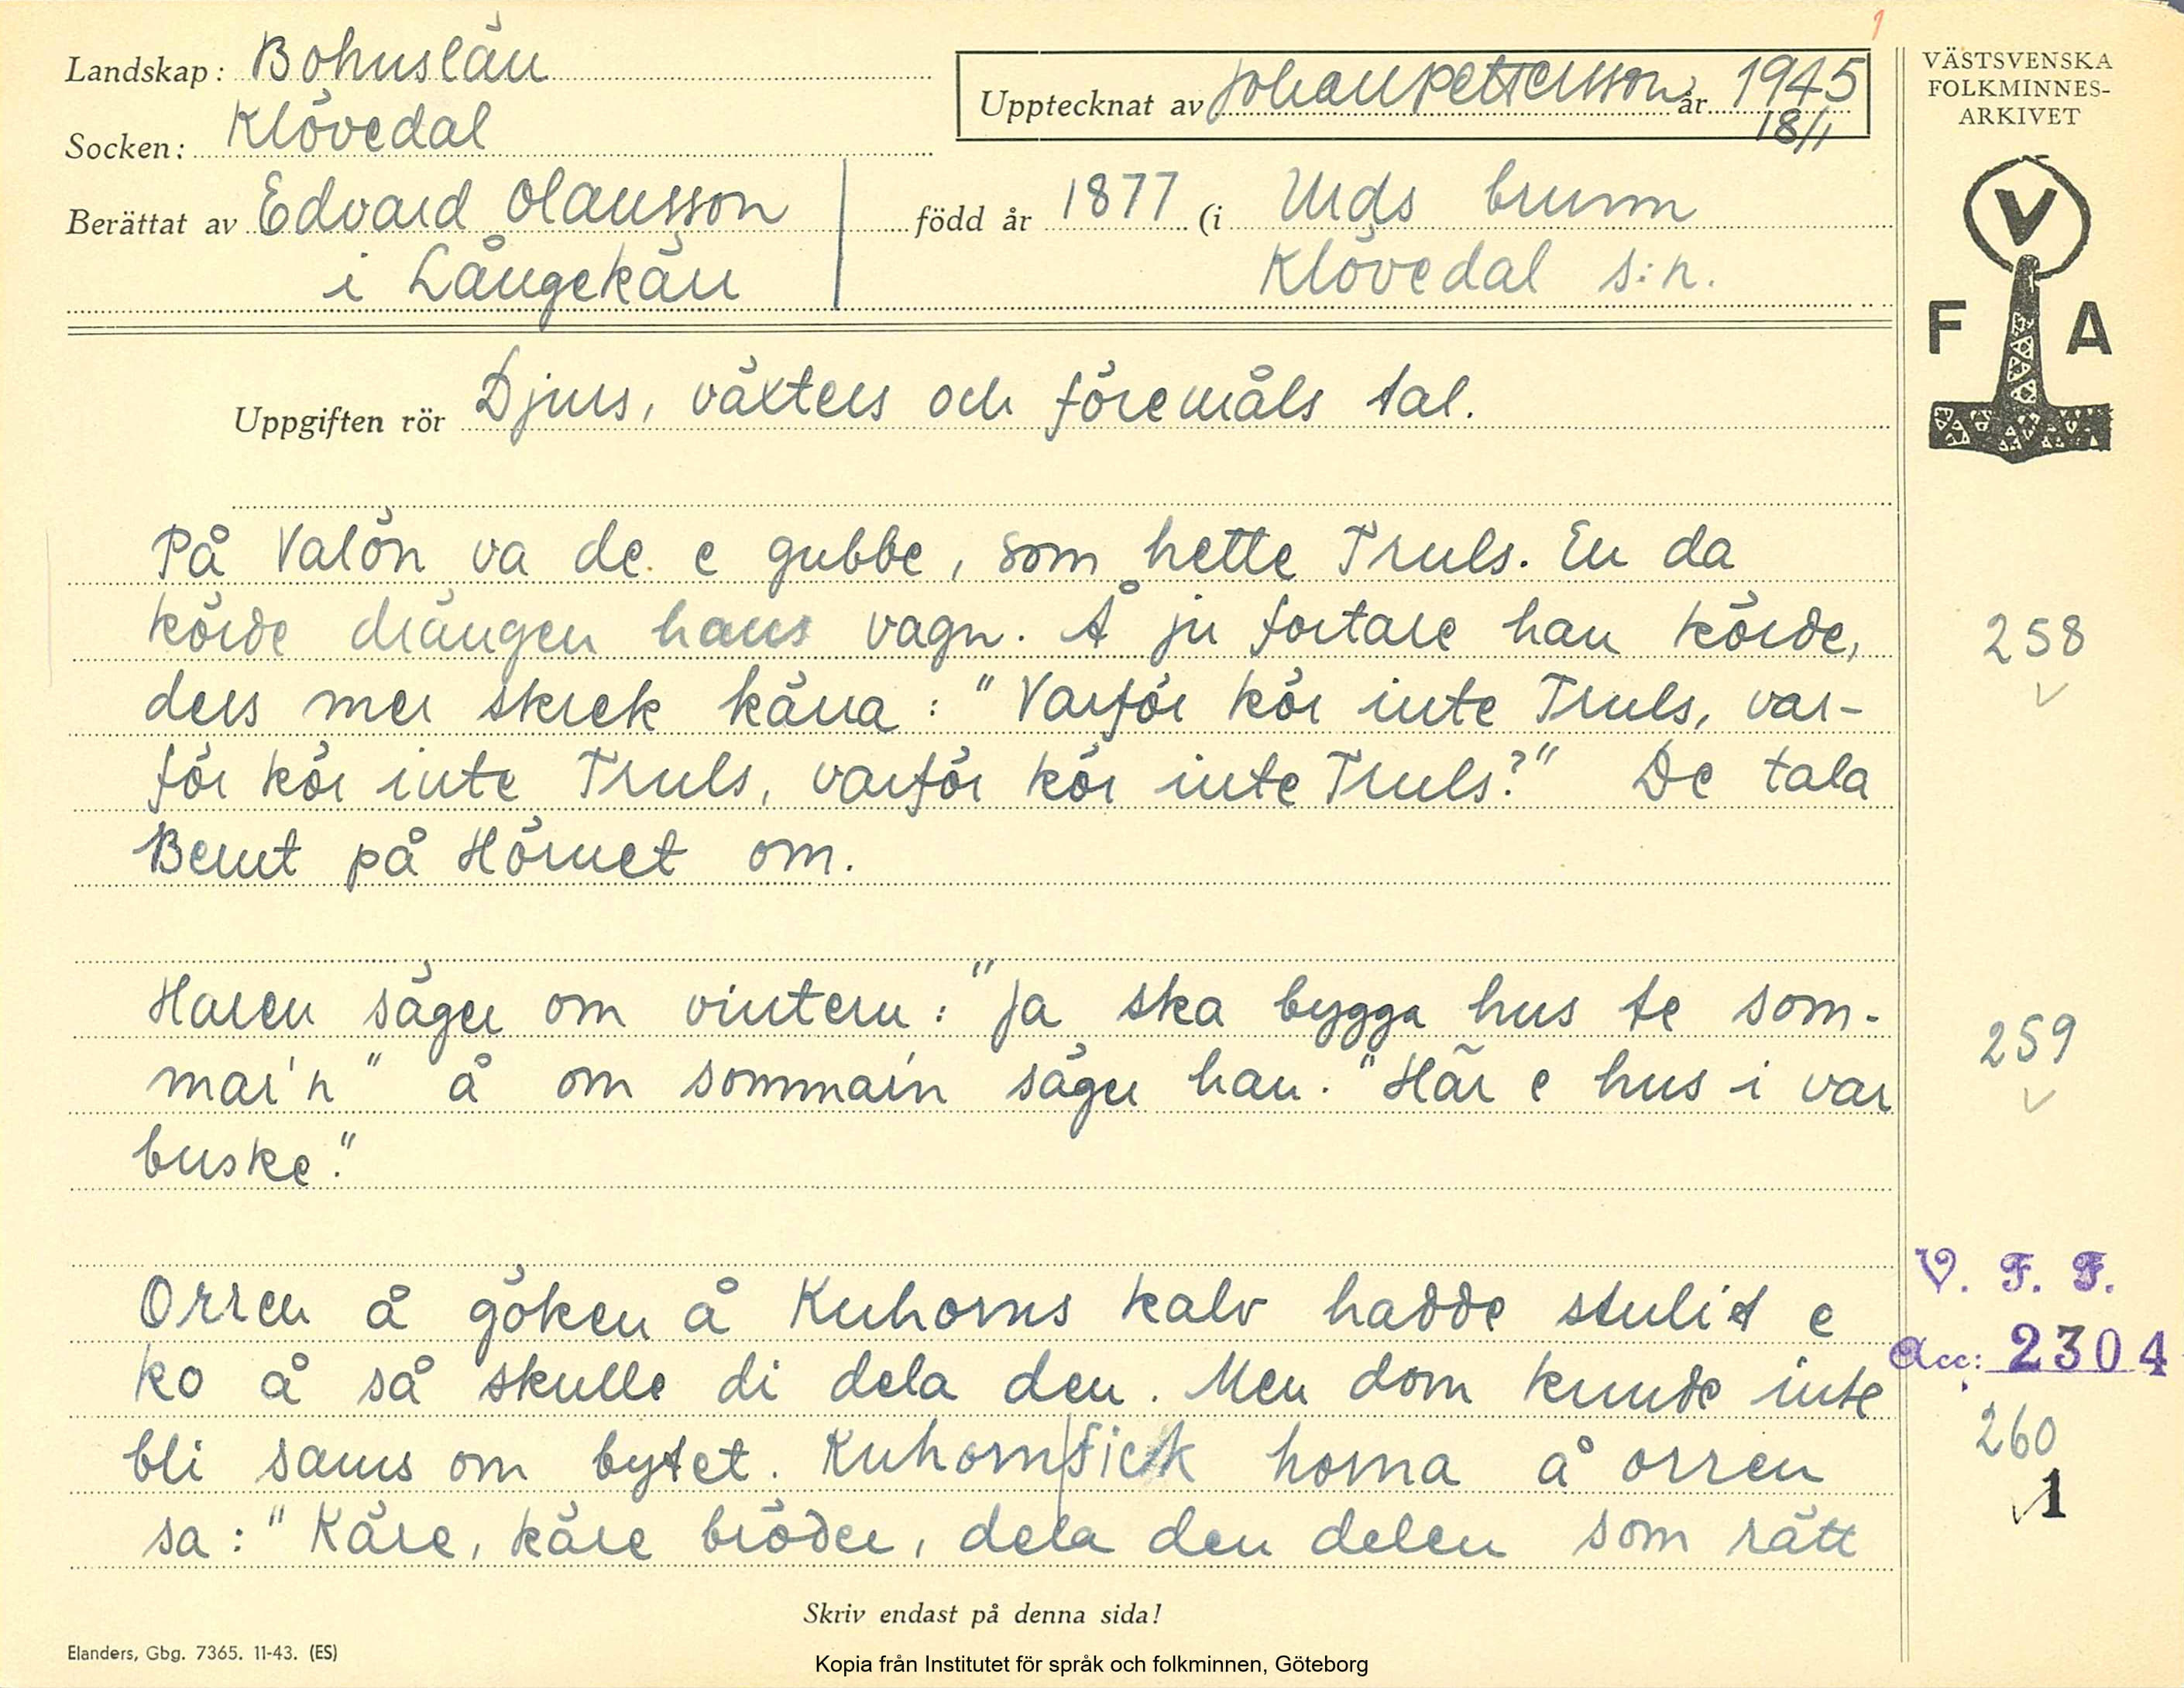 Landskap: Bohuslän
Socken: Klövedal
Upptecknat av Johan Pettersson år 1945
18/1
Berättat av Edvard Olausson
i Långekärr
född år 1877 (i Urds brunn
Klövedal s:n.
Uppgiften rör Djurs, växters och föremåls tal.
VÄSTSVENSKA
FOLKMINNES-
ARKIVET
V
F A
På Valön va de e gubbe, som hette Truls. En da
körde drängen hans vagn. Å ju fortare han körde,
ders mer skrek kärra: "Varför kör inte Truls, var-
för kör inte Truls, varför kör inte Truls?" De tala
Bernt på Hörnet om.
258
Haren säger om vintern: "Ja ska bygga hus te som-
mar'n" å om sommarn säger han. "Här e hus i var
buske."
259
Orren å göken å Kuhorns kalv hadde stulit e
ko å så skulle di dela den. Men dom kunde inte
bli sams om bytet. Kuhorn fick horna å orren
sa: "Käre, käre bröder, dela den delen som rätt
V. F. F.
Acc: 2304
260
1
Skriv endast på denna sida!
Elanders, Gbg. 7365. 11-43. (ES)
Kopia från Institutet för språk och folkminnen, Göteborg